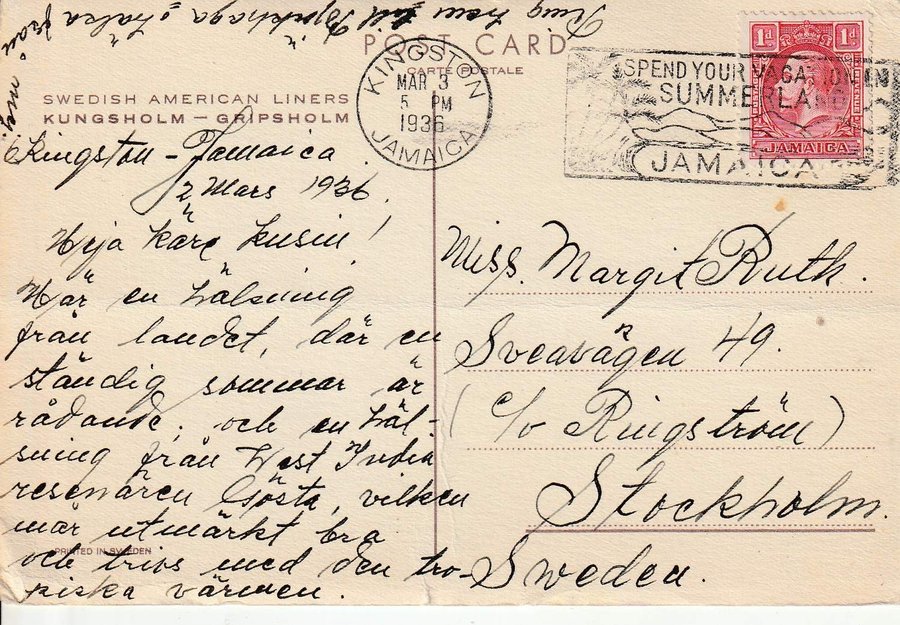 Ring hem till Björkhaga o hälsa från
mig
POST CARD
CARTE POSTALE
SWEDISH AMERICAN LINERS
KUNGSHOLM — GRIPSHOLM
KINGSTON
MAR 3
5 PM
1936
JAMAICA
SPEND YOUR VACATION IN
SUMMERLAND
JAMAICA
1d 1d
JAMAICA
Kingston - Jamaica
2 Mars 1936.
Hejja Käre Kusin!
Här en hälsning
från landet, där en
ständig sommar är
rådande, och en häl-
sning från West India
resenären Gösta, vilken
mår utmärkt bra
och trivs med den tro-
piska värmen.
PRINTED IN SWEDEN
Miss. Margit Ruth.
Sveavägen 49.
(c/o Ringström)
Stockholm.
Sweden.